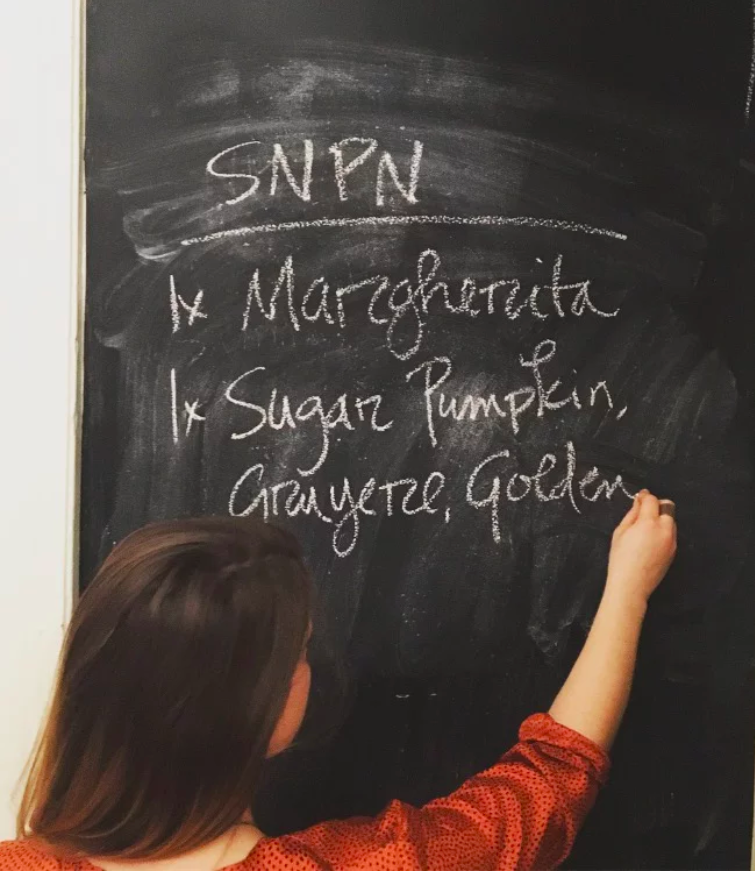 SNPN
1x Margherita
1x Sugar Pumpkin,
Gruyere, Golden